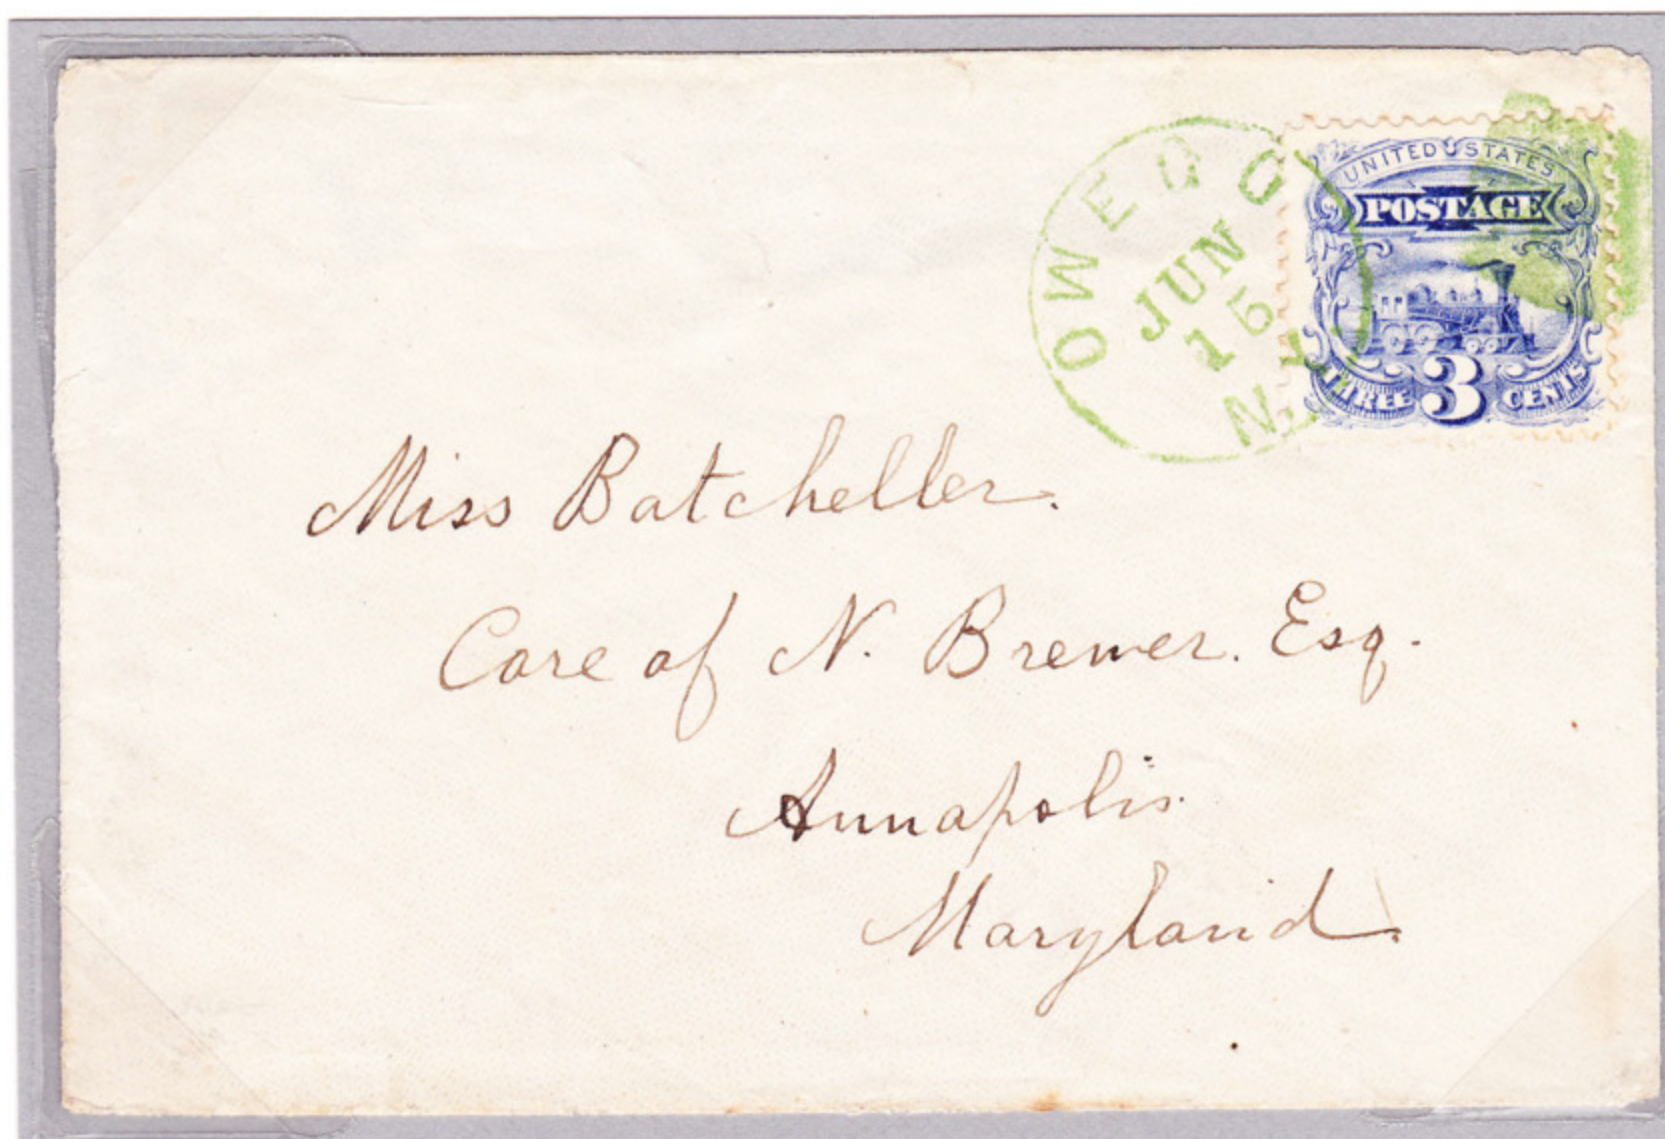 OWEGO
JUN
15
N.Y.
UNITED STATES
POSTAGE
THREE 3 CENTS
Miss Batcheller.
Care of N. Brewer. Esq.
Annapolis
Maryland.